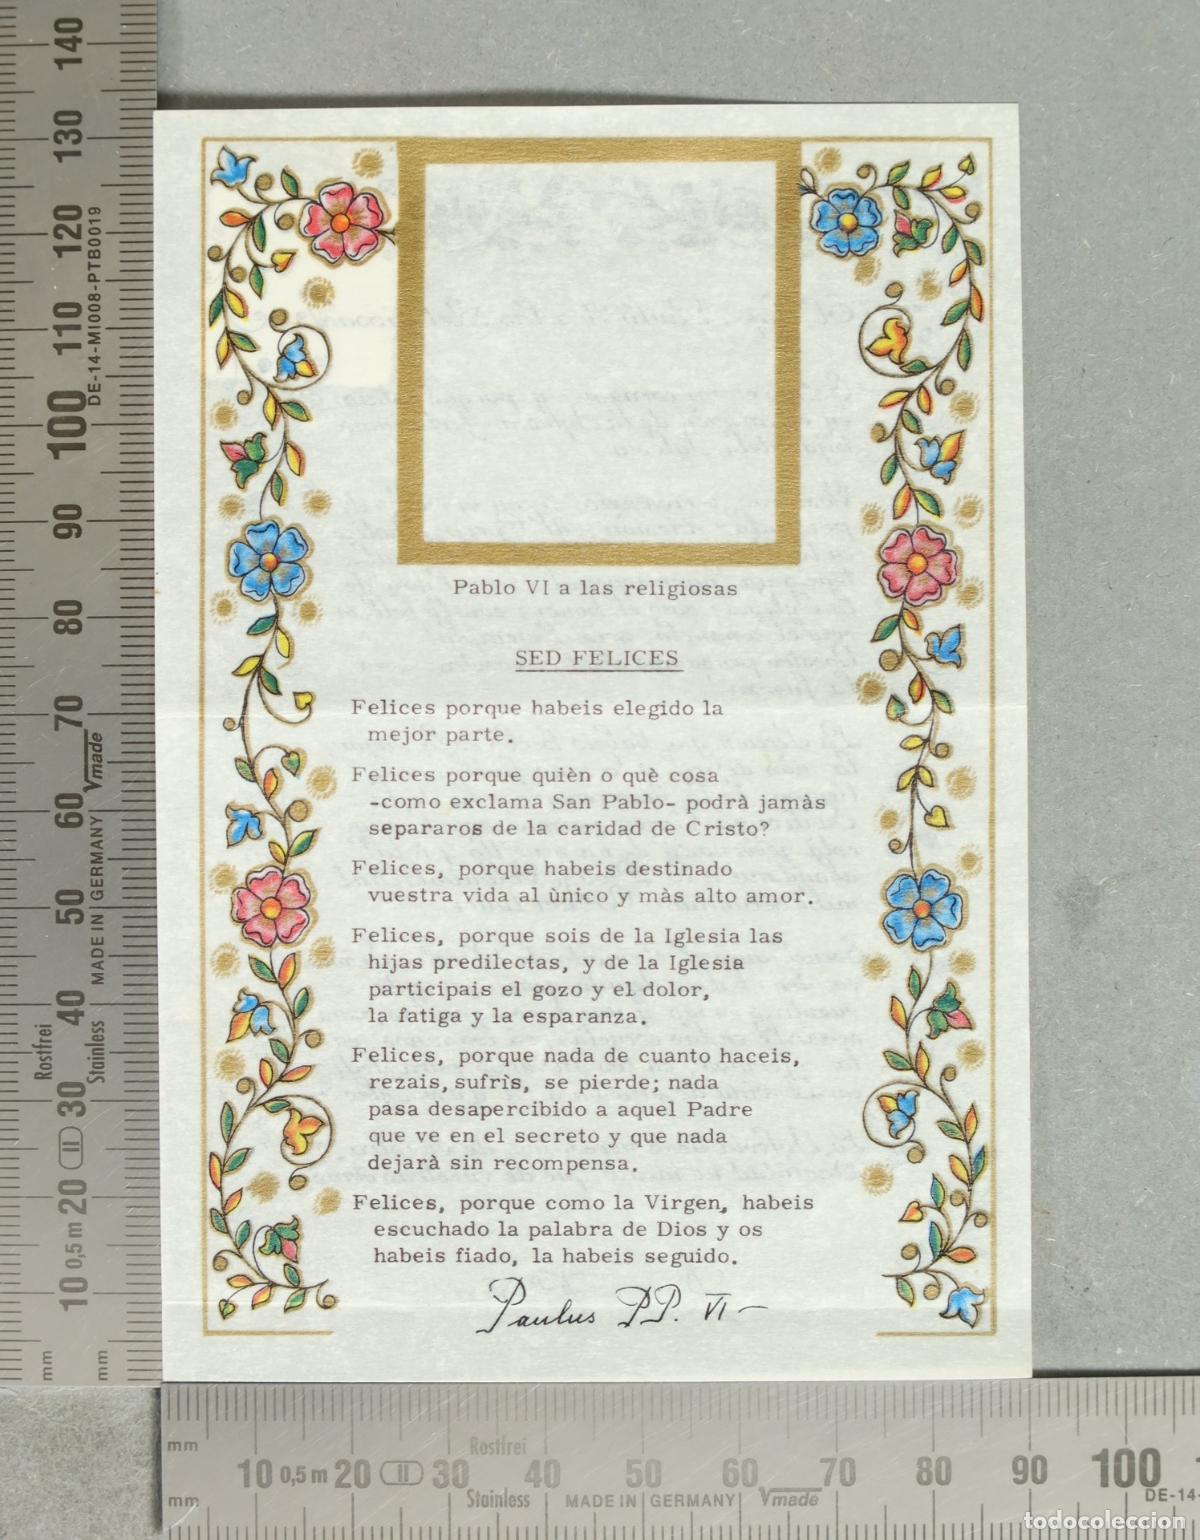 Pablo VI a las religiosas
SED FELICES
Felices porque habeis elegido la
mejor parte.
Felices porque quièn o què cosa
-como exclama San Pablo- podrà jamàs
separaros de la caridad de Cristo?
Felices, porque habeis destinado
vuestra vida al ùnico y màs alto amor.
Felices, porque sois de la Iglesia las
hijas predilectas, y de la Iglesia
participais el gozo y el dolor,
la fatiga y la esparanza.
Felices, porque nada de cuanto haceis,
rezais, sufrìs, se pierde; nada
pasa desapercibido a aquel Padre
que ve en el secreto y que nada
dejarà sin recompensa.
Felices, porque como la Virgen, habeis
escuchado la palabra de Dios y os
habeis fiado, la habeis seguido.
Paulus PP. VI
140
130
120
110
100
90
80
70
60
50
40
30
20
10 0,5 m
mm
mm
DE-14-MI008-PTB0019
Vmade
MADE IN GERMANY
Rostfrei
Stainless
mm
mm
10 0,5 m 20 30 40 50 60 70 80 90 100
Rostfrei
Stainless
MADE IN GERMANY
Vmade
DE-14-
todocoleccion